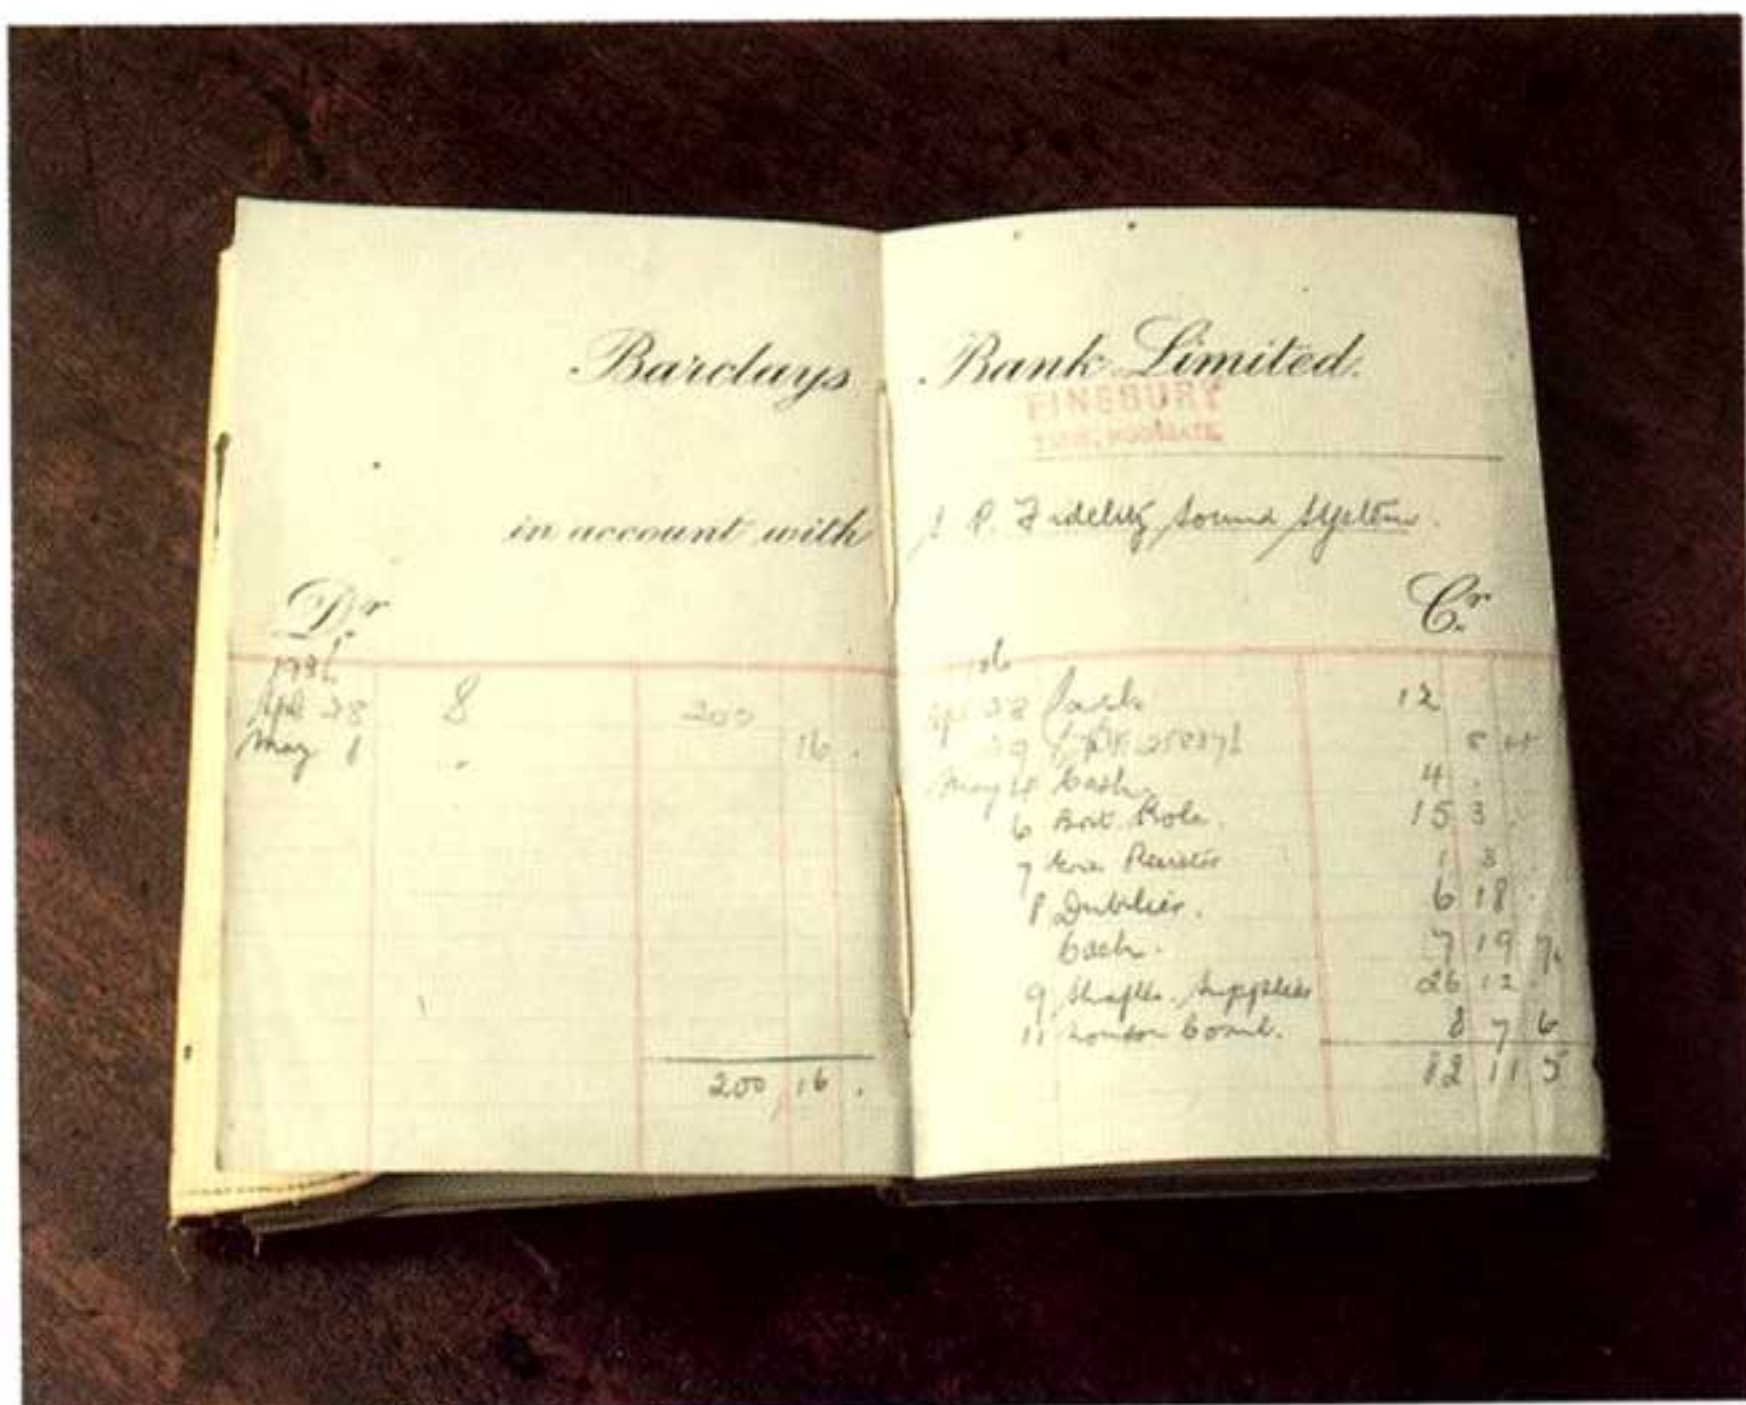 Barclays Bank Limited.
FINSBURY
in account with P. Fidelity Sound Systems.
Dr
Cr.
1936
Apl 28 8 200
May 1 16 .
200 16 .
Apl 28 Cash 12
29
May 4 Cash. 4 .
6 Brit. Rola. 15 3 .
7 Resistor 1 3
8 Dubilier. 6 18 .
Cash. 7 19 7.
9 Supplies 26 12 .
11 London 8 7 6
82 11 5